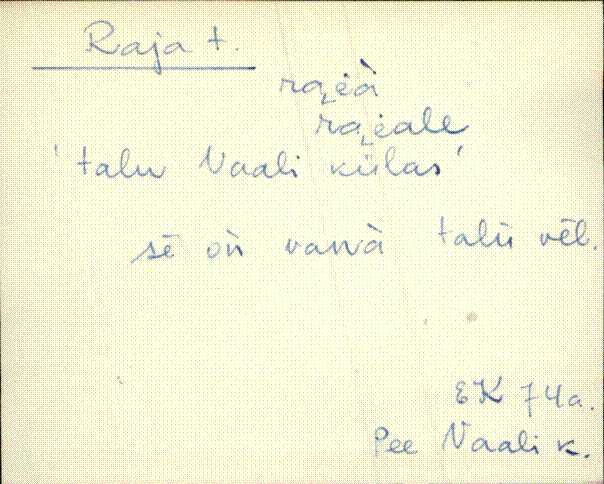 Raja t.
rai̯à
rai̯ale
'talu Naali külas'
sē òn vanà talù vēl.
EK 74a.
Pee Naali k.